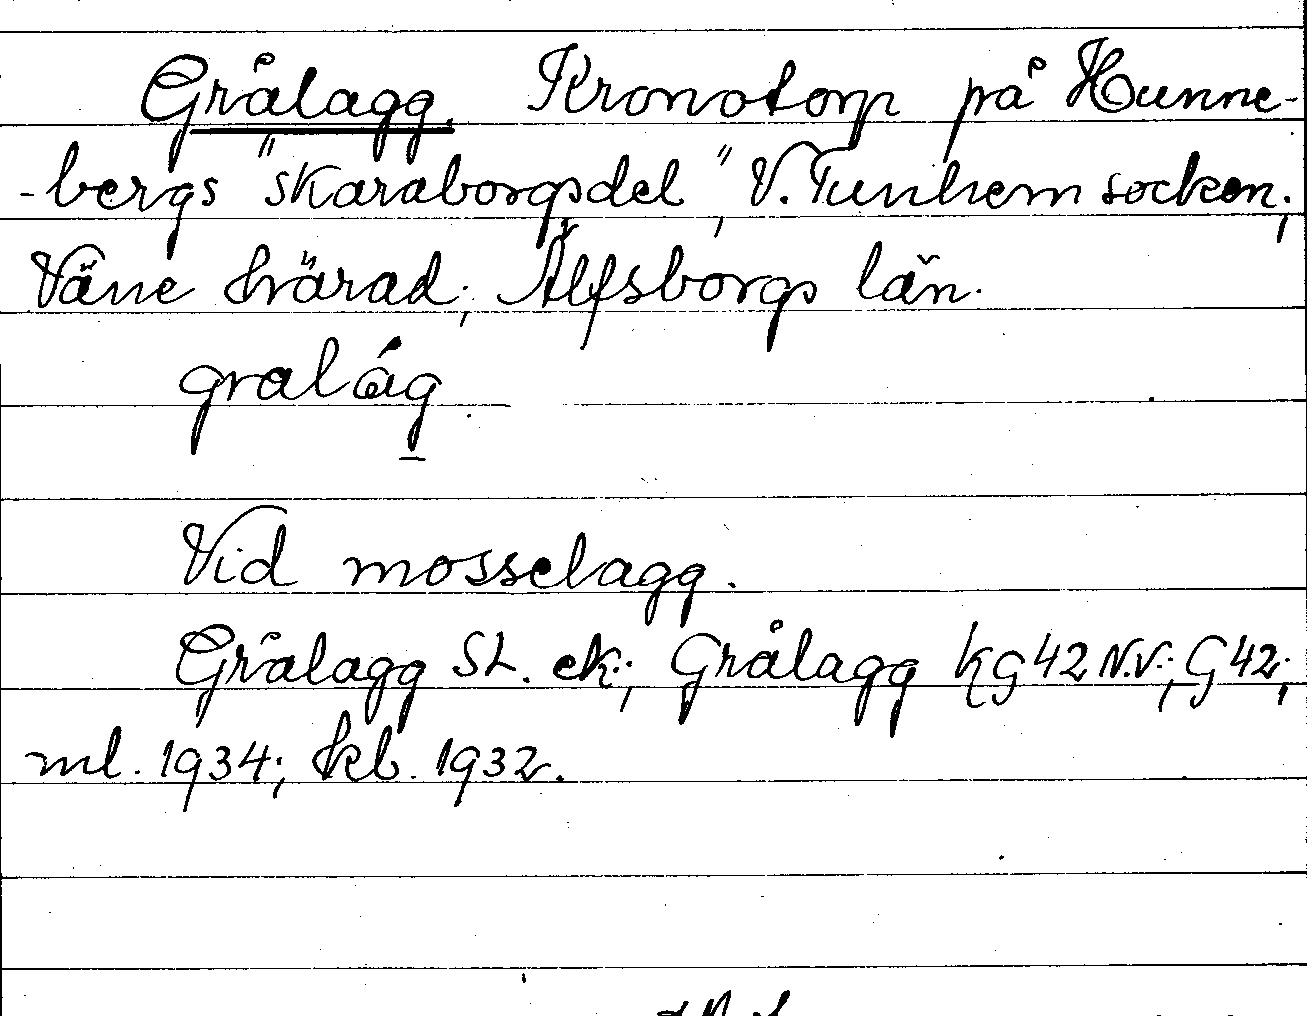 Grålagg. Kronotorp på Hunne-
-bergs "Skaraborgsdel", V. Tunhem socken;
Väne härad; Älfsborgs län.
gralág
Vid mosselagg.
Grålagg St. ek; Grålagg KG42 N.V.; G42;
ml. 1934; kb. 1932.